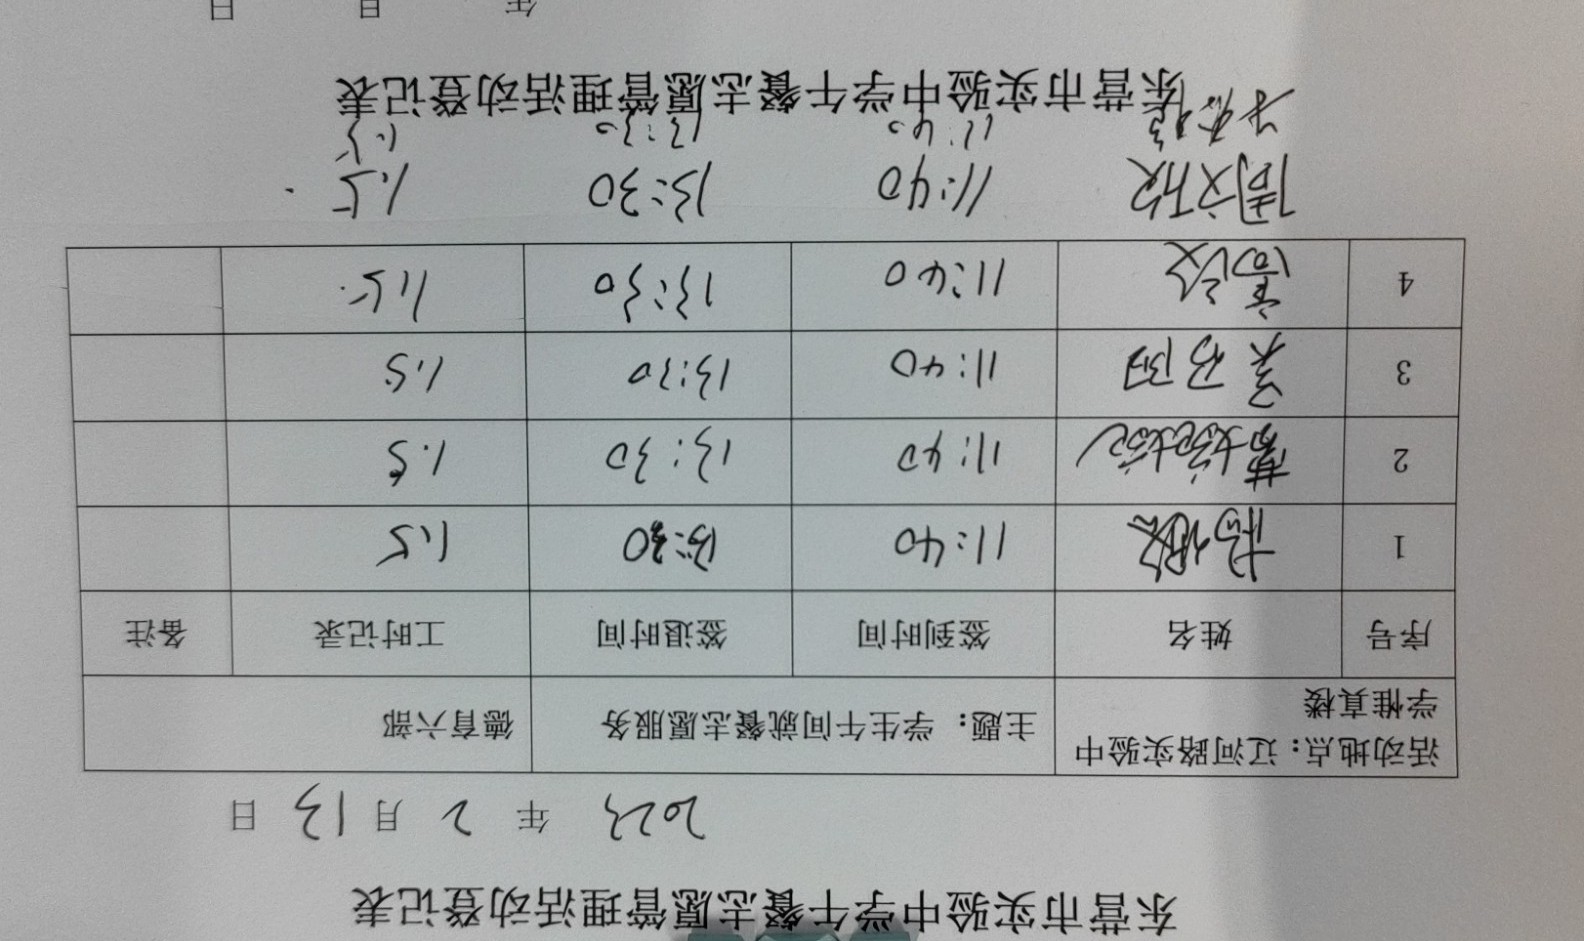 东营市实验中学午餐志愿管理活动登记表
2023 年 2 月 13 日
活动地点：辽河路实验中学惟真楼 主题：学生午间就餐志愿服务 德育六部
序号 姓名 签到时间 签退时间 工时记录 备注
1 11:40 13:30 1.5
2 11:40 13:30 1.5
3 11:40 13:30 1.5
4 11:40 13:30 1.5
周文 11:40 13:30 1.5
11:40 13:30 1.5
东营市实验中学午餐志愿管理活动登记表
年 月 日